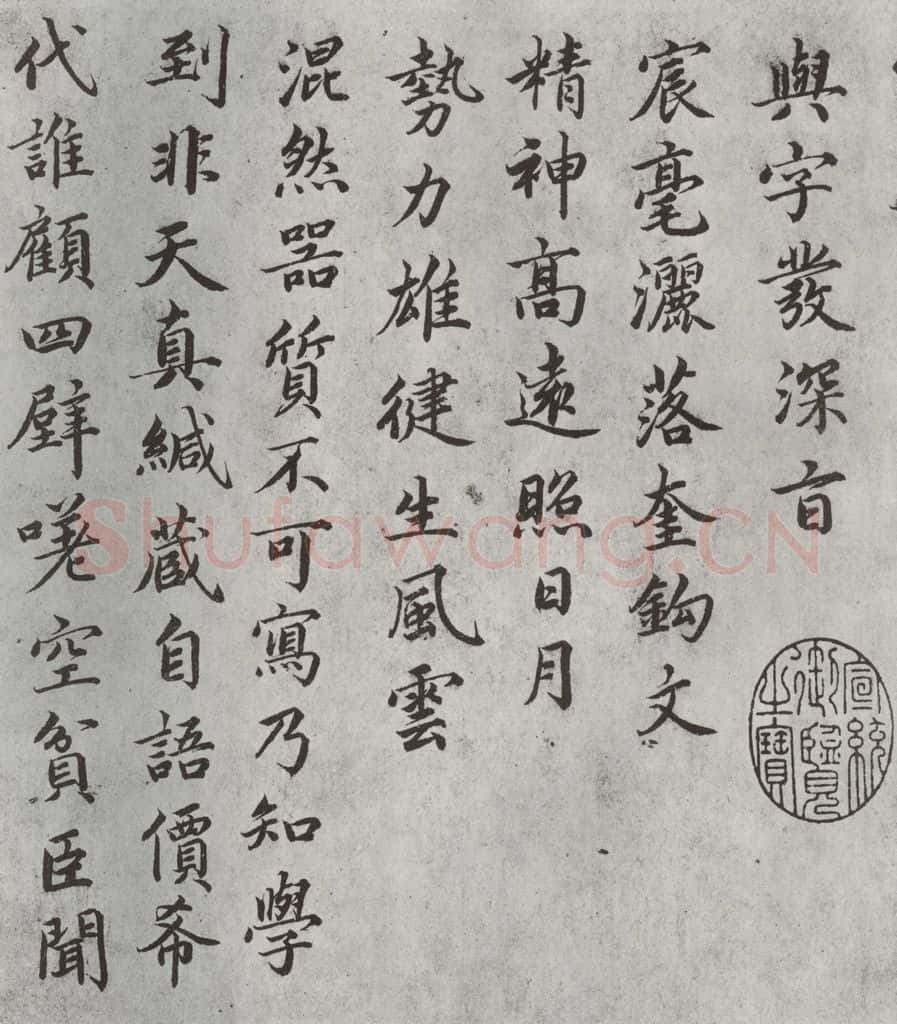 與字發深旨
宸毫灑落奎鉤文
精神高遠照日月
勢力雄健生風雲
混然器質不可寫乃知學
到非天真緘藏自語價希
代誰顧四壁嗟空貧臣聞
宣統御覽之寶
Shufawang.CN